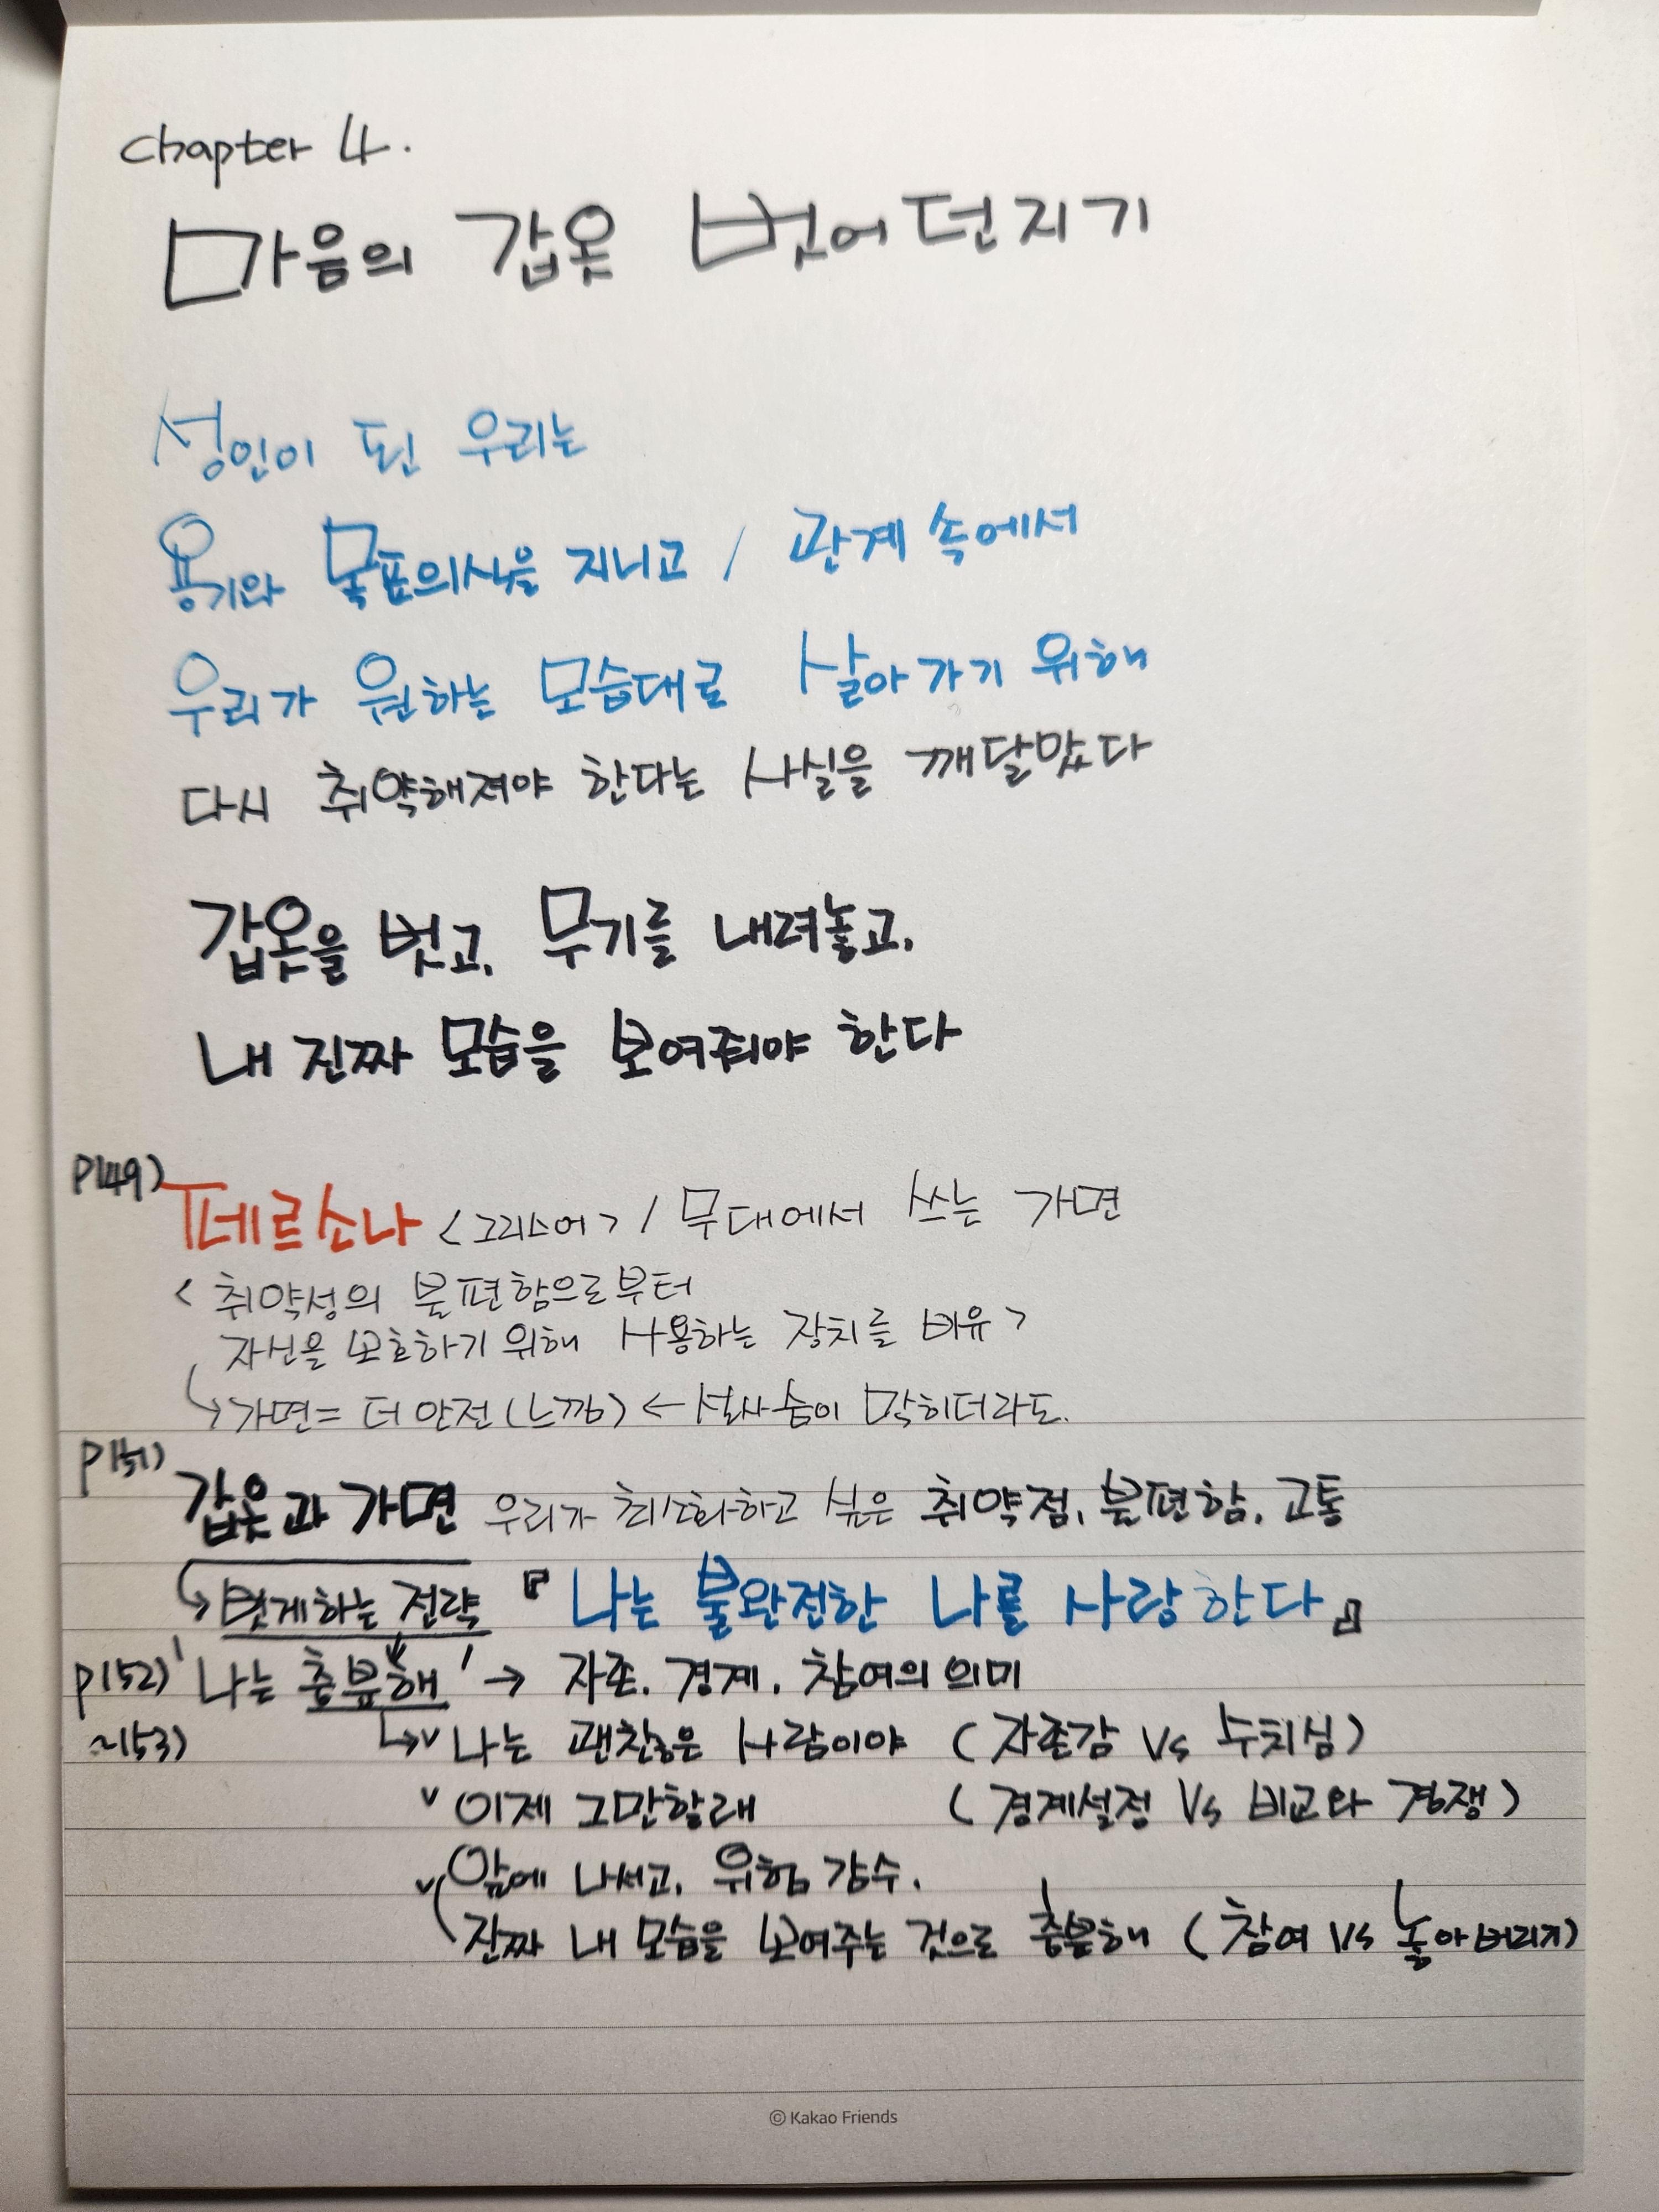 chapter 4.
마음의 갑옷 벗어던지기
성인이 된 우리는
용기와 목표의식을 지니고 / 관계 속에서
우리가 원하는 모습대로 살아가기 위해
다시 취약해져야 한다는 사실을 깨달았다
갑옷을 벗고, 무기를 내려놓고,
내 진짜 모습을 보여줘야 한다
P149) 페르소나 <그리스어> / 무대에서 쓰는 가면
< 취약성의 불편함으로부터
자신을 보호하기 위해 사용하는 장치를 비유 >
↳ 가면 = 더 안전 (느낌) ← 설사 숨이 막히더라도.
P151) 갑옷과 가면 우리가 최소화하고 싶은 취약점, 불편함, 고통
↳ 벗게하는 전략 『나는 불완전한 나를 사랑한다』
P152) '나는 충분해' → 자존, 경계, 참여의 의미
~153) ↳ v 나는 괜찮은 사람이야 (자존감 vs 수치심)
v 이제 그만할래 (경계설정 vs 비교와 경쟁)
v 앞에 나서고, 위험 감수.
진짜 내 모습을 보여주는 것으로 충분해 (참여 vs 놓아버리기)
© Kakao Friends